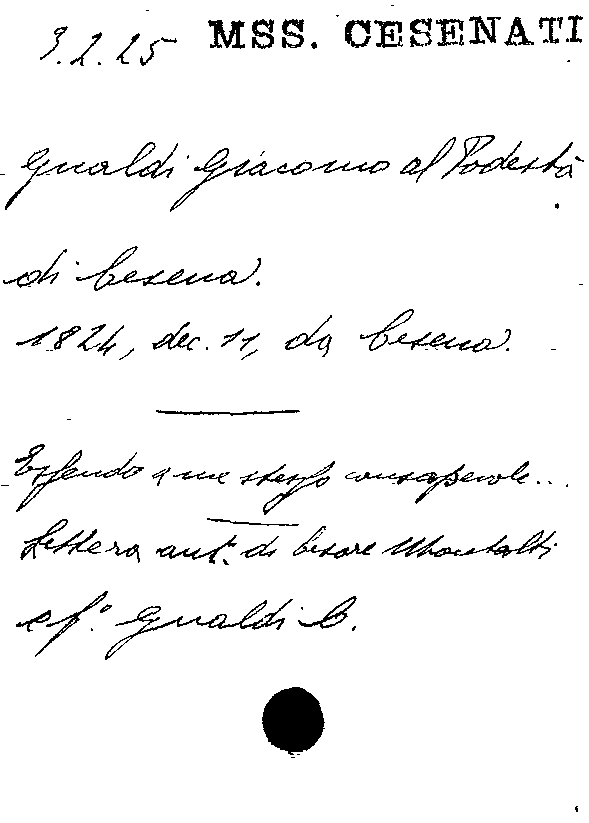 3.2.25 MSS. CESENATI
Gualdi Giacomo al Podestà
di Cesena.
1824, dec. 11, da Cesena.
Essendo a me stesso consapevole...
Lettera aut. di Cesare Montalti
e fº. Gualdi C.